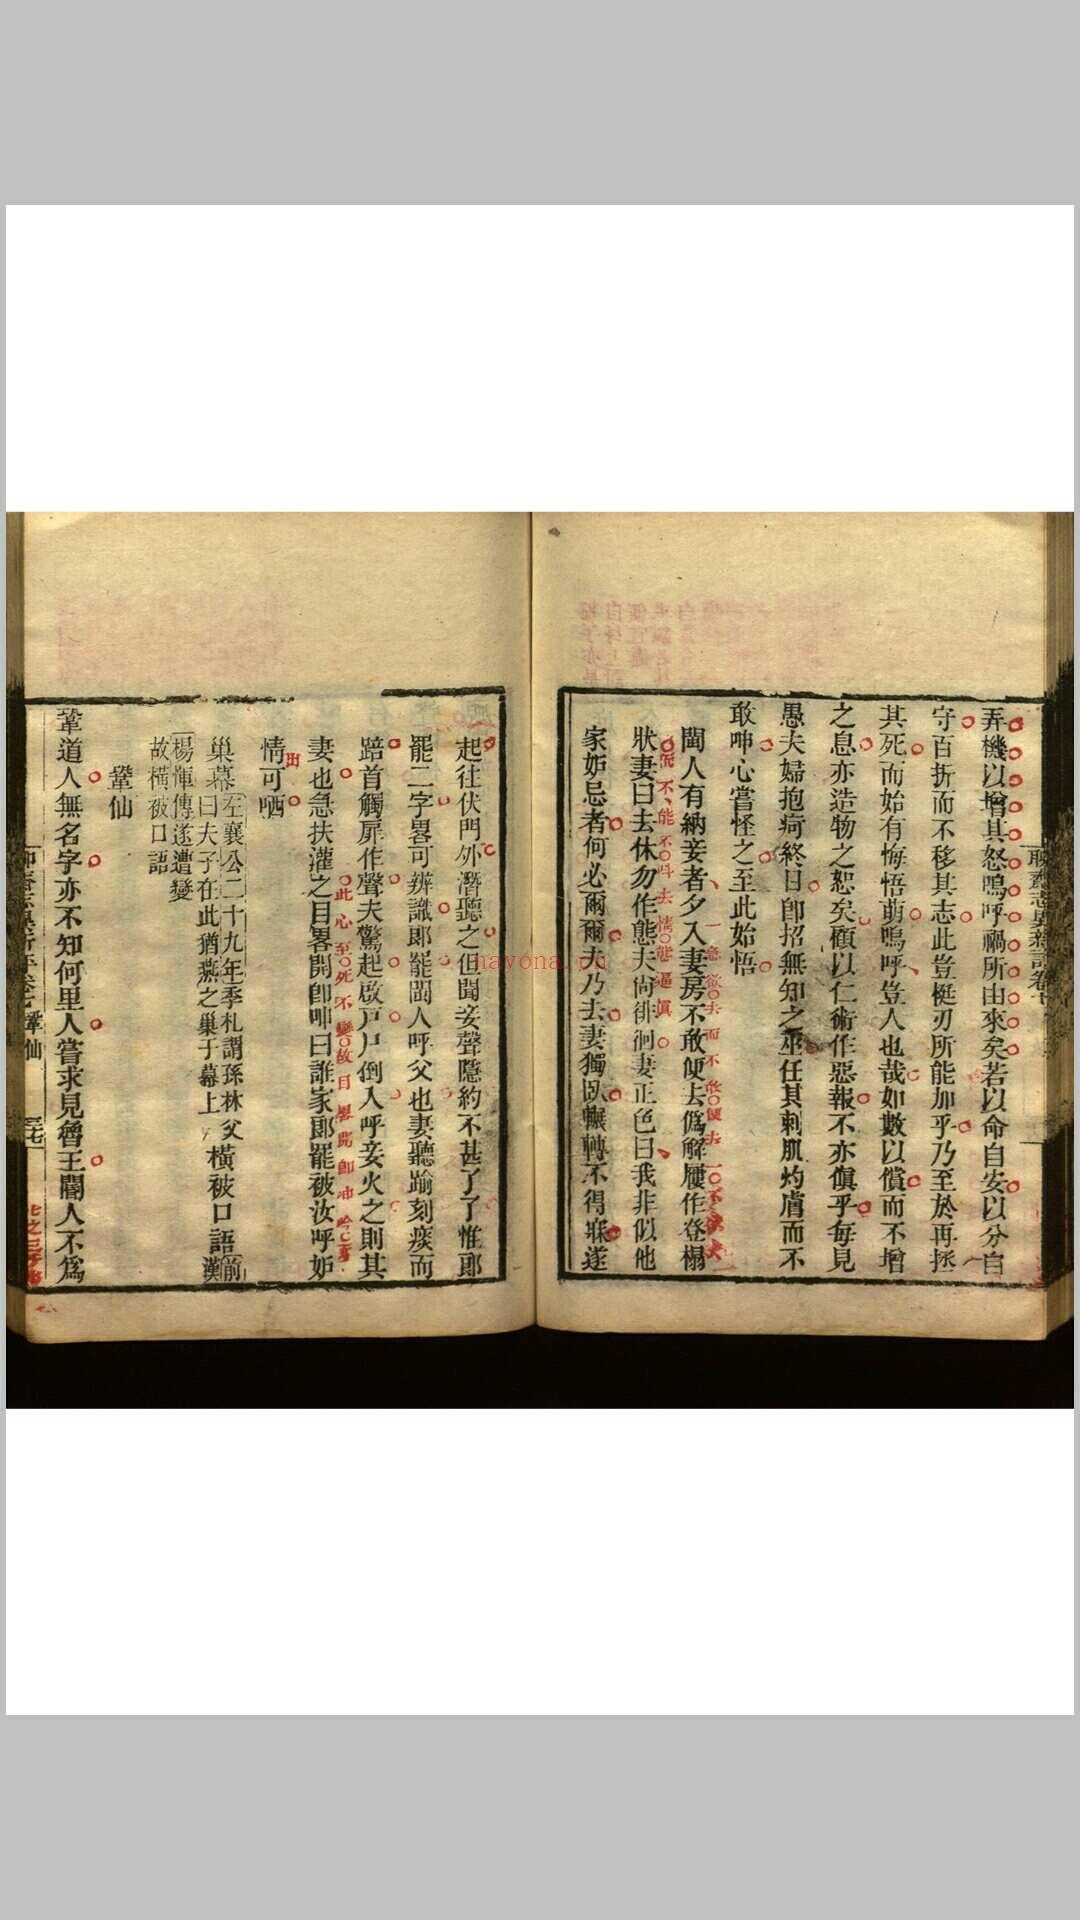 弄機以增其怒嗚呼禍所由來矣若以命自安以分自
守百折而不移其志此豈梃刃所能加乎乃至於再拯
其死而始有悔悟萌嗚呼豈人也哉如數以償而不增
之息亦造物之恕矣顧以仁術作惡報不亦傎乎每見
愚夫婦抱疴終日卽招無知之巫任其刺肌灼膚而不
敢呻心嘗怪之至此始悟
閩人有納妾者夕入妻房不敢便去僞解屨作登榻
狀妻曰去休勿作態夫尙徘徊妻正色曰我非似他
家妬忌者何必爾爾夫乃去妻獨臥輾轉不得寐遂
起往伏門外潛聽之但聞妾聲隱約不甚了了惟郞
罷二字畧可辨識郞罷閩人呼父也妻聽踰刻痰而
踣首觸扉作聲夫驚起啟戸尸倒入呼妾火之則其
妻也急扶灌之目畧開卽呻曰誰家郞罷被汝呼妬
情可哂
巢幕左襄公二十九年季札謂孫林父
曰夫子在此猶燕之巢于幕上
橫被口語前漢
楊惲傳遂遭變
故橫被口語
鞏仙
鞏道人無名字亦不知何里人嘗求見魯王閽人不爲
鞏仙
nayona.cn